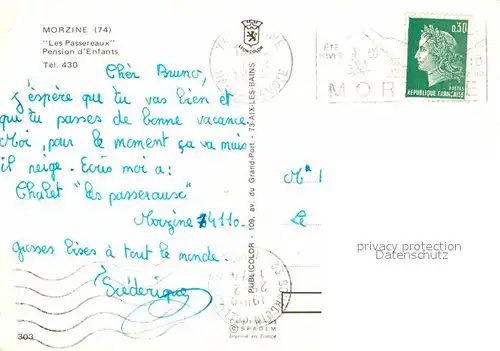 MORZINE (74)
"Les Passereaux"
Pension d'Enfants
Tél. 430
Chèr Bruno,
J'espère que tu vas bien et
que tu passes de bonne vacance
Moi, pour le moment ça va mais
il neige. Ecris moi à :
Chalet "les passeraux"
Morzine 74110.
grosses bises à tout le monde.
Fréderique
303
LYONCOLOR
PUBLICOLOR - 109, av. du Grand-Port - 73-AIX-LES-BAINS
© SPADEM
Imprimé en France
ÉTÉ
HIVER
MOR
E
0,30
POSTES
RÉPUBLIQUE FRANÇAISE
Mr
Le
privacy protection
Datenschutz